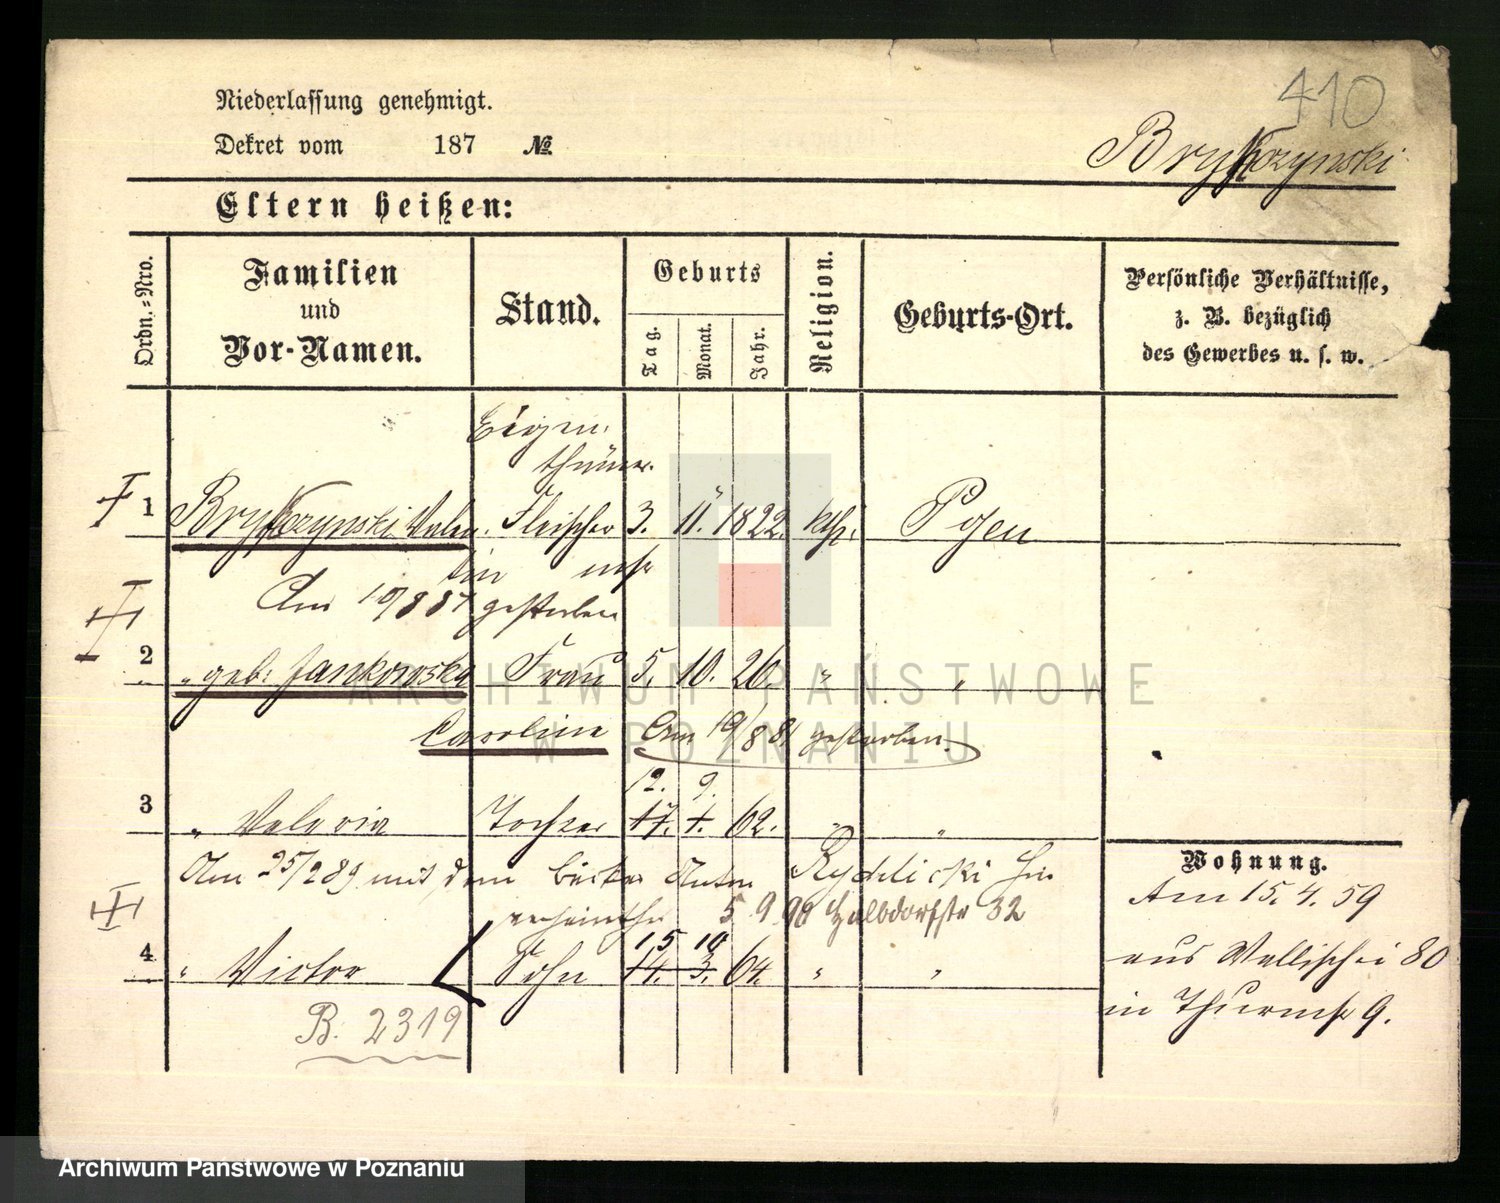 410
Niederlassung genehmigt.
Dekret vom 187 №
Brykczynski
Eltern heißen:
Ordn.-Nro.
Familien
und
Vor-Namen.
Stand.
Geburts
Tag.
Monat.
Jahr.
Religion.
Geburts-Ort.
Persönliche Verhältnisse,
z. B. bezüglich
des Gewerbes u. s. w.
Eigen-
thümer.
1 Brykczynski Valen- Fleischer 3. 11. 1822. kth. Posen
tin
Am gestorben
2 " geb. Jankowska Frau 5. 10. 26. " "
Carolina Am 19/8 81 gestorben.
12. 9.
3 " Valeria Tochter 17. 1. 62. " "
Am 25/2 89 mit dem Bäcker Anton Rydlicki hier
verheirathet 5 9 98 Halbdorfstr 32
15 10
4 " Victor Sohn 14. 3. 64. " "
B. 2319
Wohnung.
Am 15. 4. 59
aus Wallischei 80
in Thurmstr 9.
ARCHIWUM PAŃSTWOWE
W POZNANIU
Archiwum Państwowe w Poznaniu